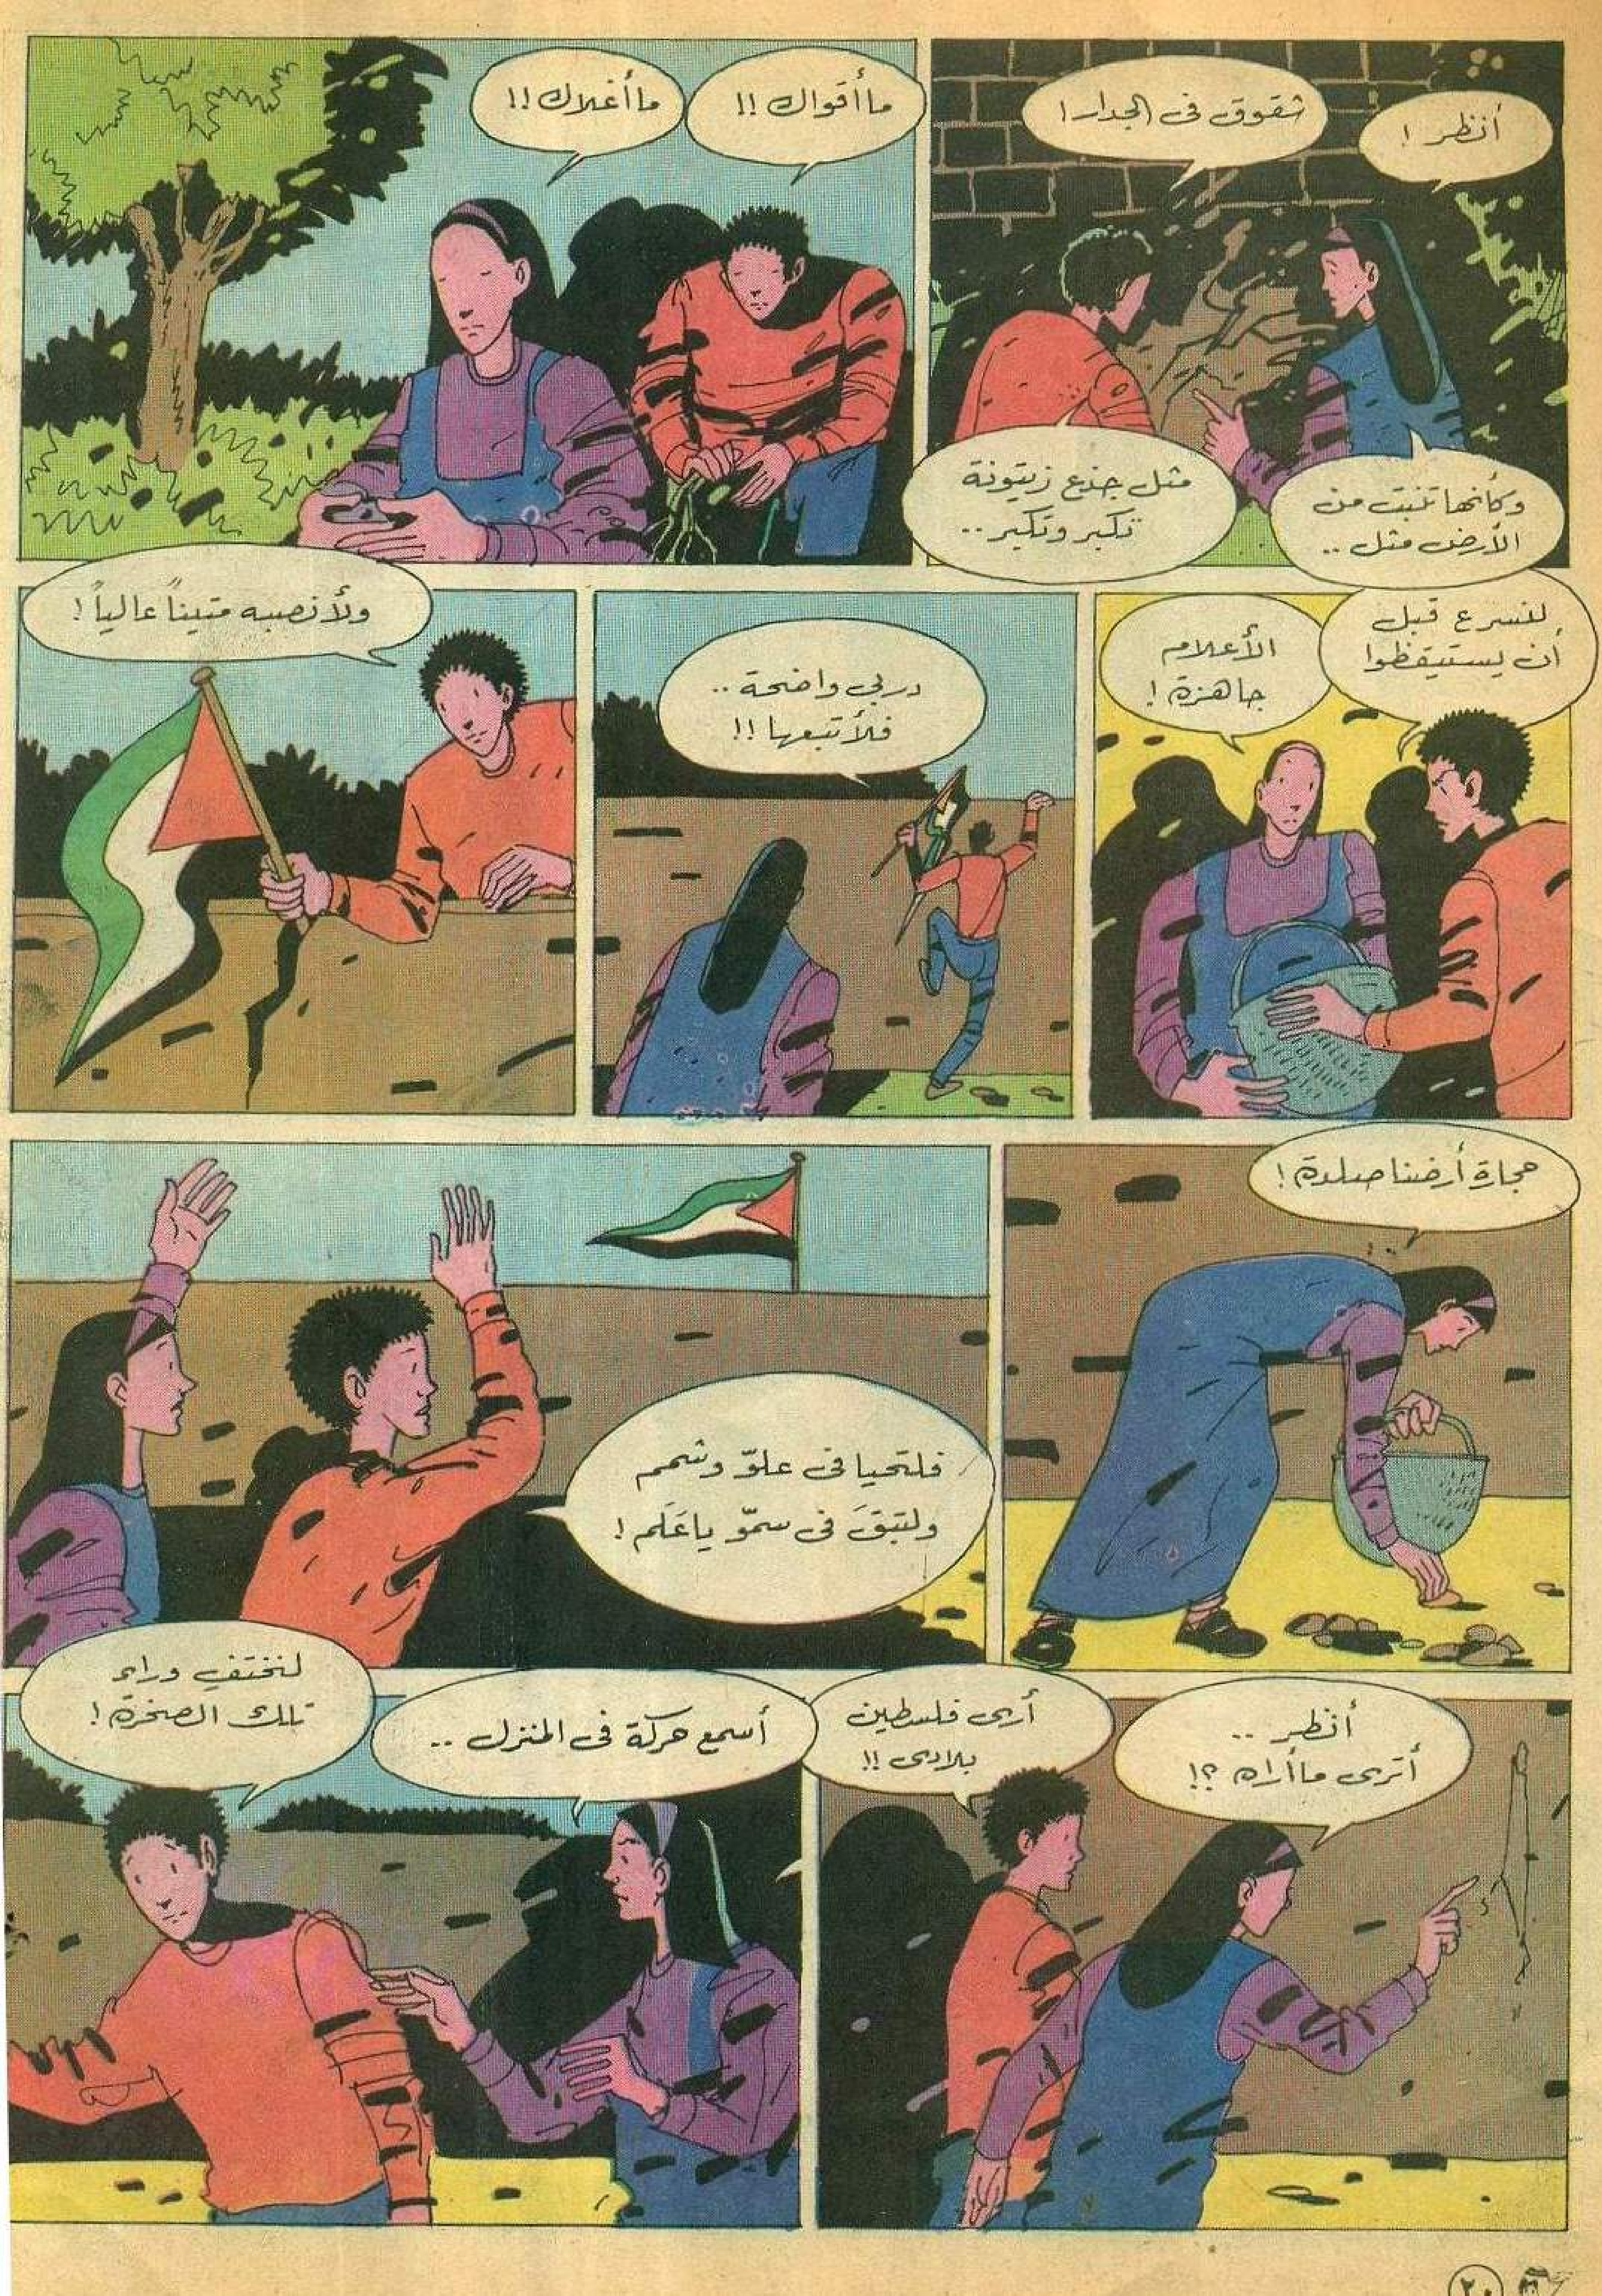 أنظر !
شقوق فى الجدار !
وكأنها تنبت من
الأرض مثل ..
مثل جذع زيتونة
تكبر وتكبر ..
ما أقواك !!
ما أغلاك !!
لنسرع قبل
أن يستيقظوا
الأعلام
جاهزة !
دربي واضحة ..
فلأتبعها !!
ولأنصبه متيناً عالياً !
حجارة أرضنا صلدة !
فلتحيا فى علوّ وشمم
ولتبقَ فى سموّ يا عَلَم !
أنظر ..
أترى ما أراه ؟!
أرى فلسطين
بلادى !!
أسمع حركة فى المنزل ..
لنختفِ وراء
تلك الصخرة !
٢٠